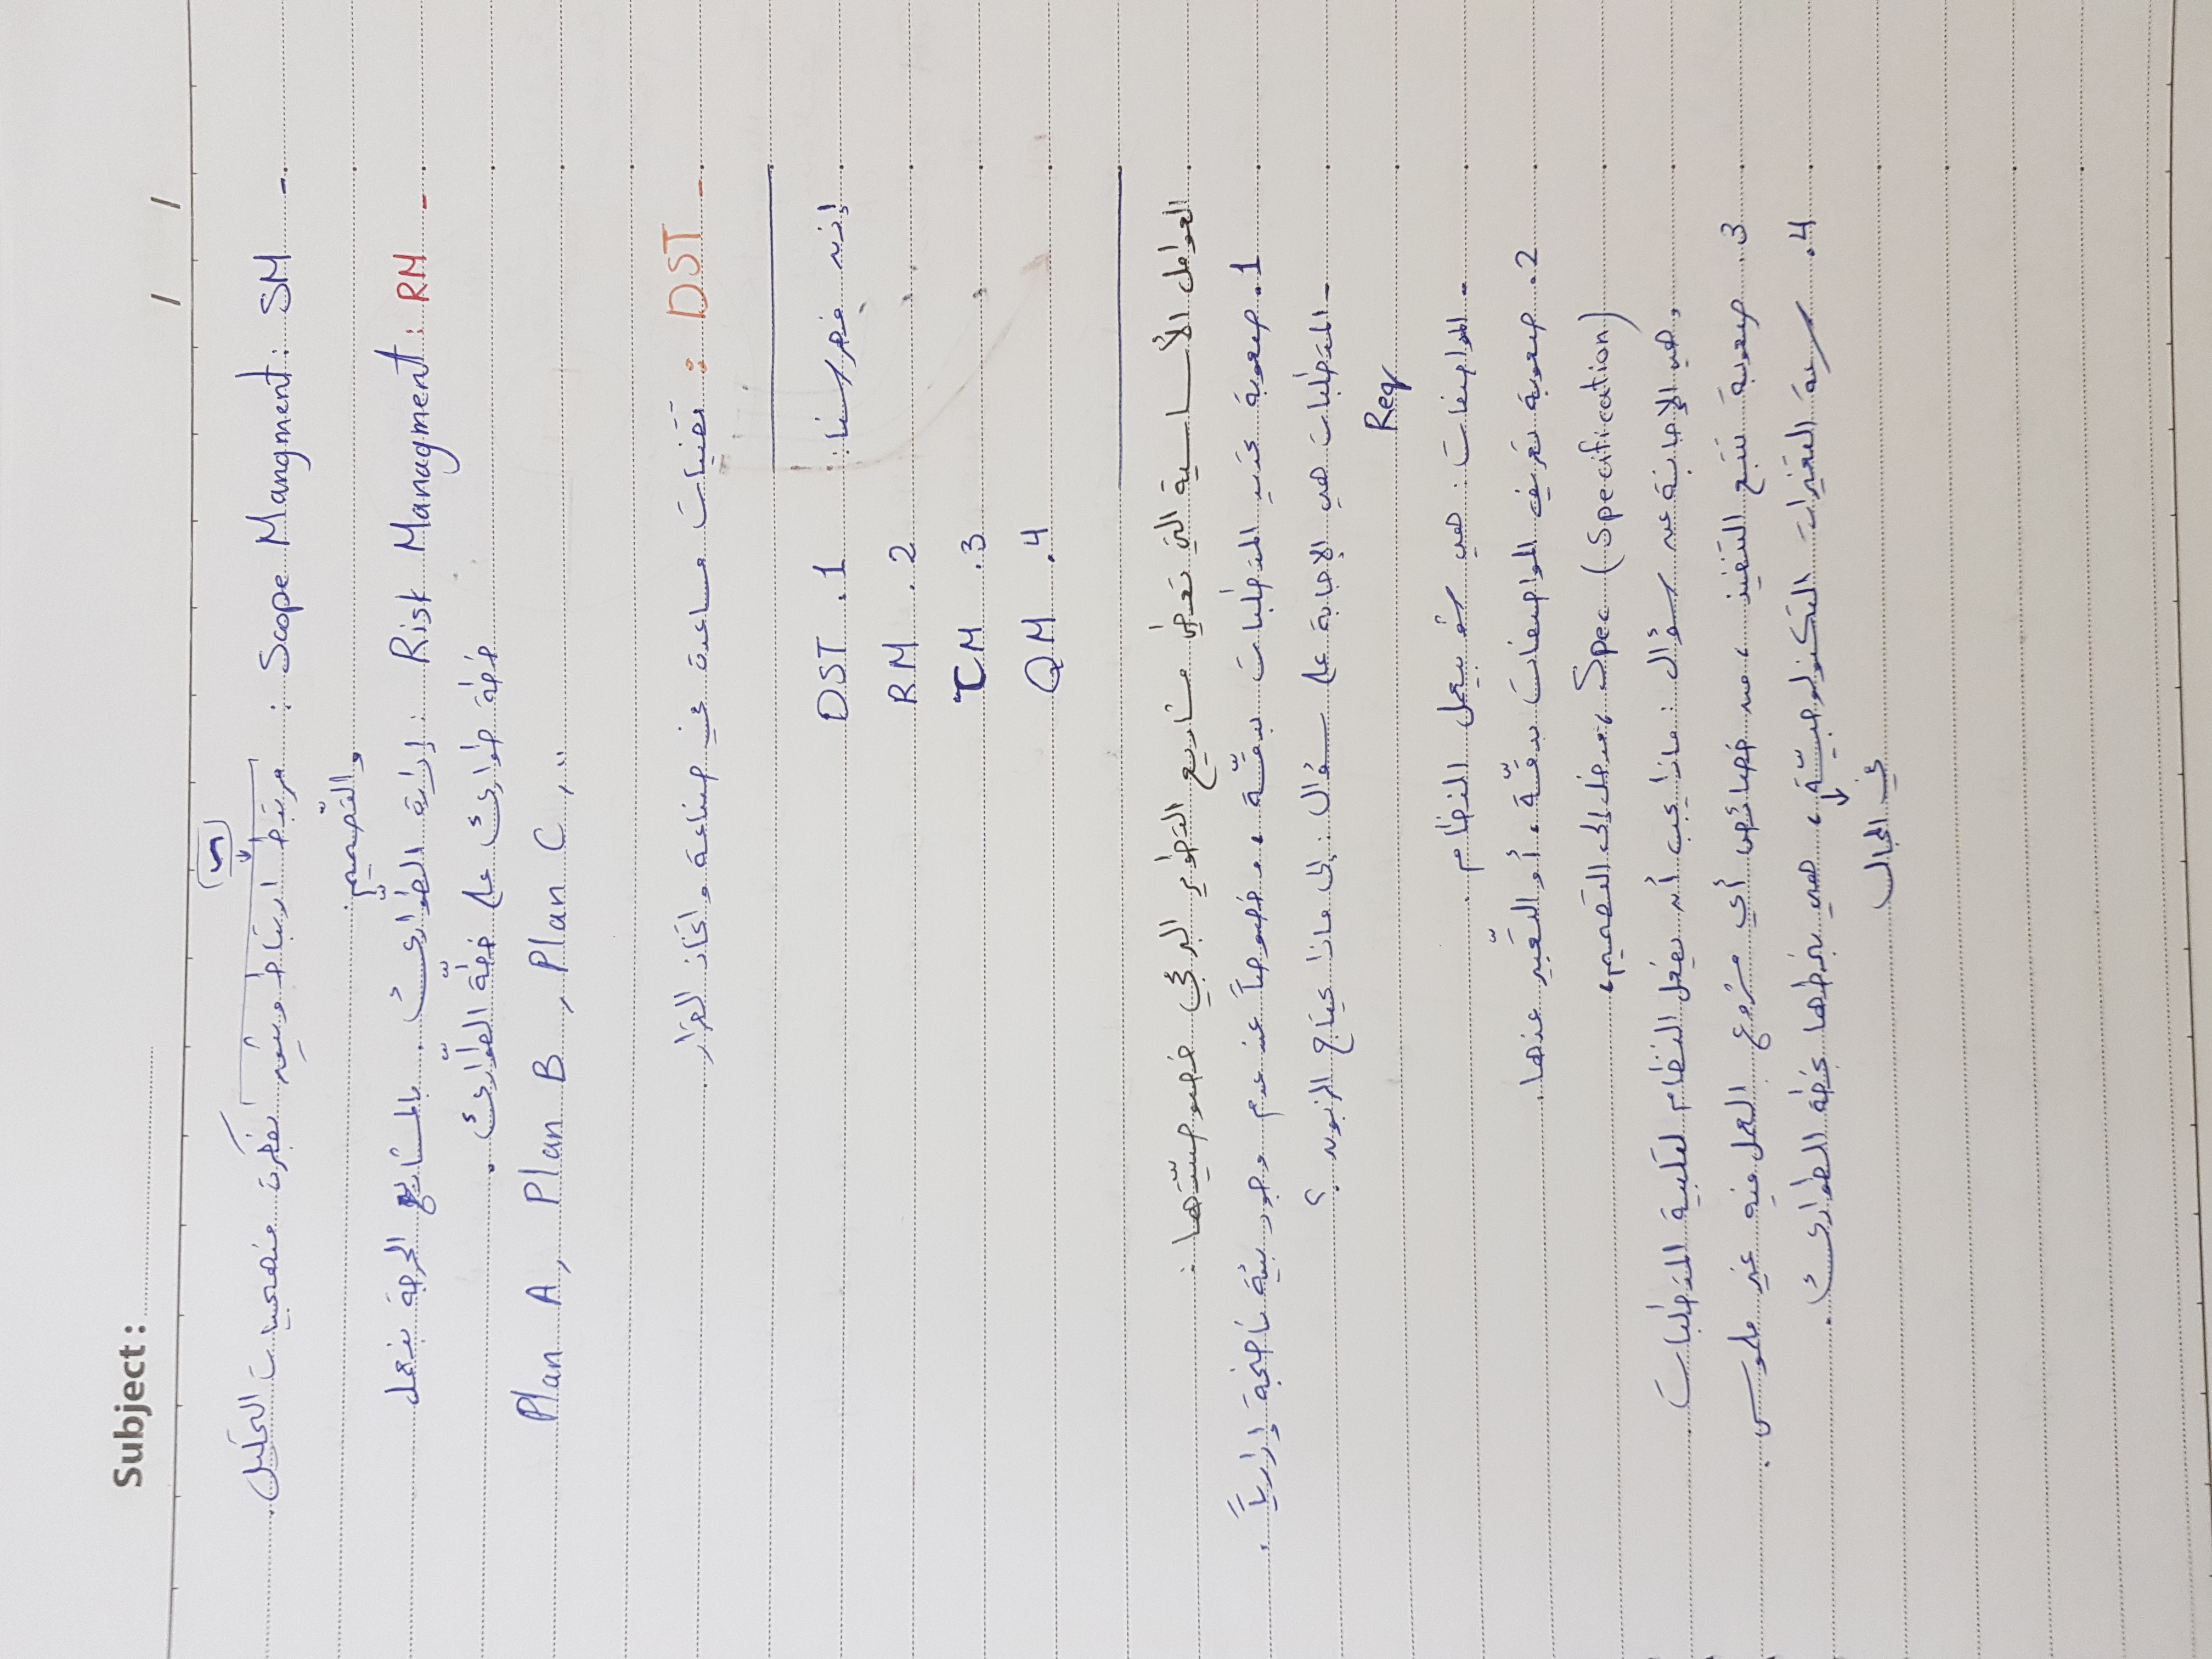 Subject :
/ /
- SM : Scope Mangment : مرتبط ارتباط وثيق بفكرة منهجيات التحليل .
والتّصميم .
- RM : Risk Managment : إدارة الطوارئ . بالمشاريع الحرجة بنعمل
خطة طوارئ على خطّة الطّوارئ .
Plan A, Plan B, Plan C, ..
- DST : تقنيات مساعدة في صناعة واتخاذ القرار .
إذن فهرسنا :
1. DST
2. RM
3. TM
4. QM
العوامل الأساسية التي تعطي مشاريع التطوير البرمجي خصوصيّتها :
1. صعوبة تحديد المتطلبات بدقّة ، خصوصاً عند عدم وجود بيئة ناضجة إدارياً .
- المتطلبات هي الإجابة على سؤال : إلى ماذا يحتاج الزبون ؟
Req
- المواصفات : هي شو بيعمل النظام .
2. صعوبة تعريف المواصفات بدقّة ، أو التّعبير عنها .
Spec (Specification) ، مدخل إلى التصميم ،
وهي الإجابة عن سؤال : ماذا يجب أن يفعل النظام لتلبية المتطلبات .
3. صعوبة تتبع التنفيذ ، من خصائص أي مشروع العمل فيه غير ملموس .
4. سرعة التغيرات التكنولوجيّة ، هي نربطها بخطة الطوارئ .
في المجال